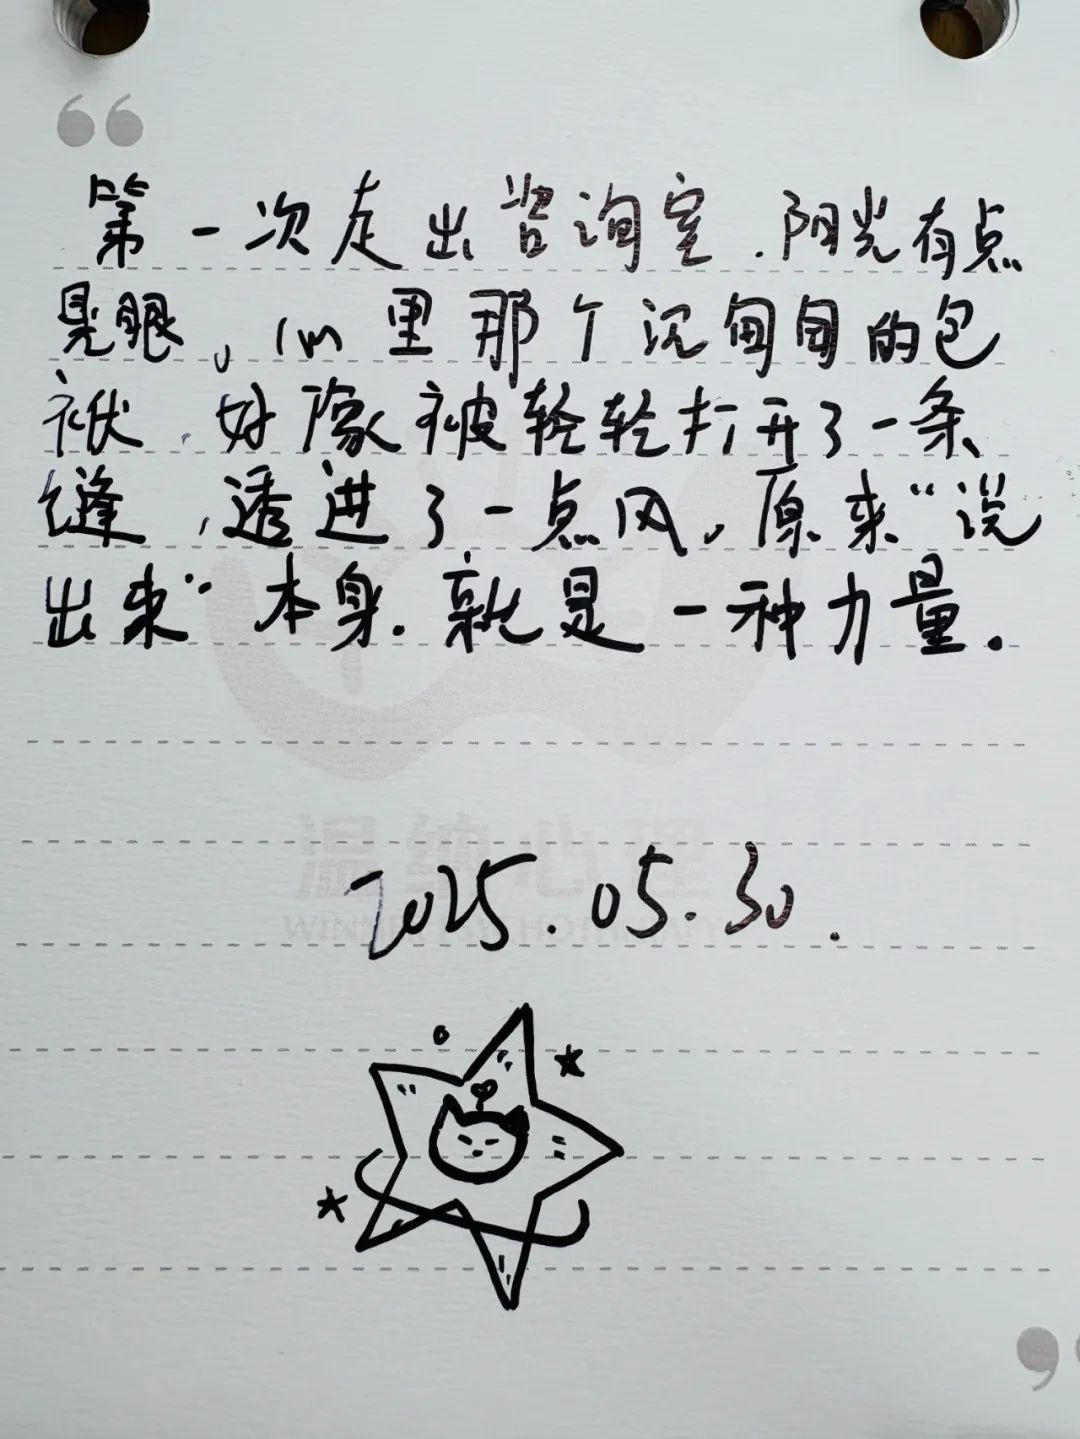 第一次走出咨询室.阳光有点
晃眼，心里那个沉甸甸的包
袱，好像被轻轻打开了一条
缝，透进了一点风，原来“说
出来”本身.就是一种力量.
温纳心理
2025.05.30.